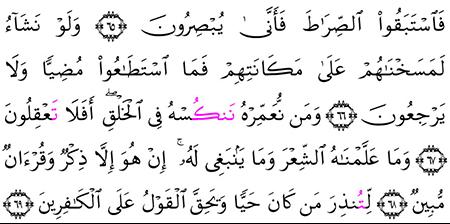 فَٱسْتَبَقُواْ ٱلصِّرَٰطَ فَأَنَّىٰ يُبْصِرُونَ ﴿٦٥﴾ وَلَوْ نَشَآءُ
لَمَسَخْنَٰهُمْ عَلَىٰ مَكَانَتِهِمْ فَمَا ٱسْتَطَٰعُواْ مُضِيًّا وَلَا
يَرْجِعُونَ ﴿٦٦﴾ وَمَن نُّعَمِّرْهُ نَنكُسْهُ فِى ٱلْخَلْقِۖ أَفَلَا تَعْقِلُونَ
﴿٦٧﴾ وَمَا عَلَّمْنَٰهُ ٱلشِّعْرَ وَمَا يَنۢبَغِى لَهُۥٓۚ إِنْ هُوَ إِلَّا ذِكْرٌ وَقُرْءَانٌ
مُّبِينٌ ﴿٦٨﴾ لِّتُنذِرَ مَن كَانَ حَيًّا وَيَحِقَّ ٱلْقَوْلُ عَلَى ٱلْكَٰفِرِينَ ﴿٦٩﴾